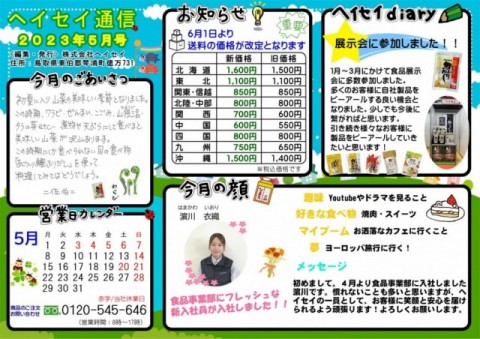 ヘイセイ通信
2023年5月号
編集・発行:株式会社ヘイセイ
住所:鳥取県東伯郡琴浦町徳万731
今月のごあいさつ
お知らせ
重要
6月1日より
送料の価格が改定となります
新価格 旧価格
北海道 1,600円 1,500円
東北 1,100円 1,000円
関東・信越 850円 850円
北陸・中部 800円 800円
関西 700円 600円
中国 600円 500円
四国 800円 600円
九州 750円 650円
沖縄 1,500円 1,400円
※税込価格です
ヘイセイdiary
展示会に参加しました!!
1月~3月にかけて食品展示
会に多数参加しました。
多くのお客様に自社製品を
ピーアールする良い機会と
なりました。少しでも今後に
繋がればと思います。
引き続き様々なお客様に
製品をピーアールしていき
たいと思います!
営業日カレンダー
5月
月 火 水 木 金 土 日
1 2 3 4 5 6 7
8 9 10 11 12 13 14
15 16 17 18 19 20 21
22 23 24 25 26 27 28
29 30 31
赤字/当社休業日
商品のご注文
お問い合わせ
0120-545-646
(営業時間:8時~17時)
今月の顔
はまかわ いおり
濵川 衣織
食品事業部にフレッシュな
新入社員が入社しました!!
趣味 Youtubeやドラマを見ること
好きな食べ物 焼肉・スイーツ
マイブーム お洒落なカフェに行くこと
夢 ヨーロッパ旅行に行く!
メッセージ
初めまして、4月より食品事業部に入社しました
濵川です。慣れないことも多いと思いますが、ヘ
イセイの一員として、お客様に笑顔と安心を届け
られるよう頑張ります!よろしくお願いします。